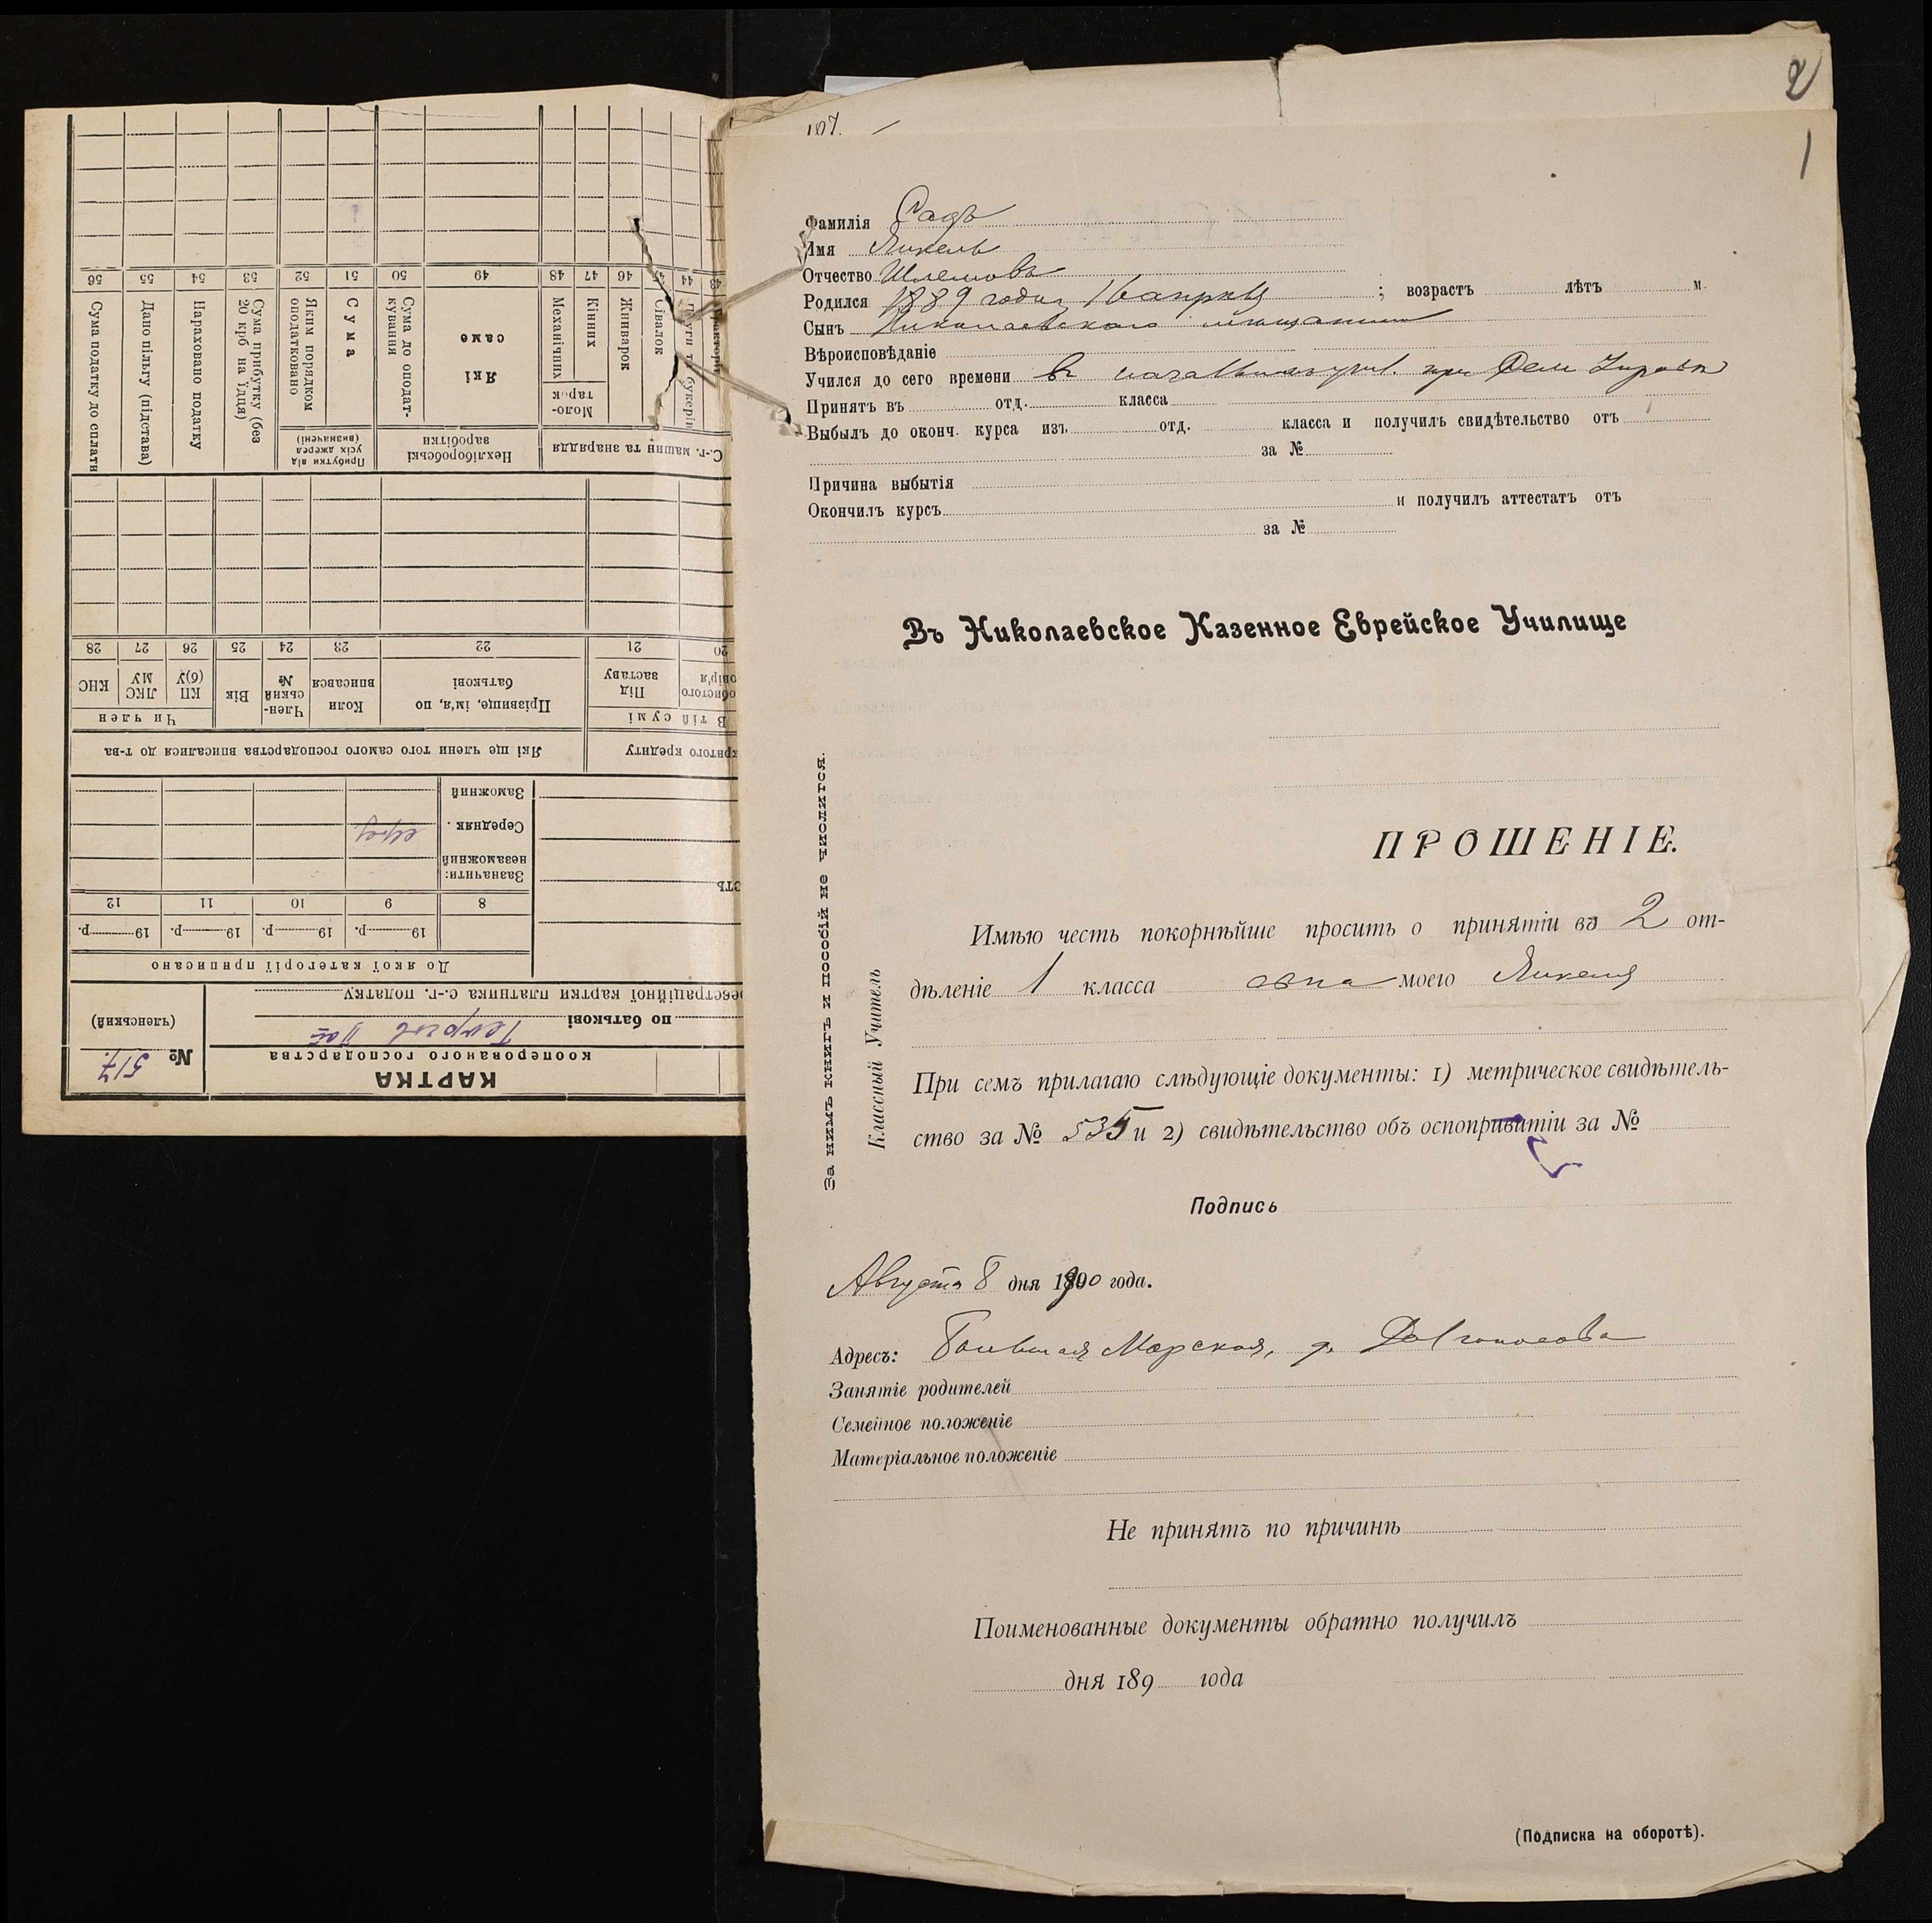 2
1
107.
Фамилія Садъ
Имя Янкель
Отчество Шлемовъ
Родился 1889 года, 16 апрѣля ; возрастъ лѣтъ м.
Сынъ Николаевскаго мѣщанина
Вѣроисповѣданіе
Учился до сего времени въ училищѣ при
Принятъ въ отд. класса
Выбылъ до оконч. курса изъ отд. класса и получилъ свидѣтельство отъ
за №
Причина выбытія
Окончилъ курсъ и получилъ аттестатъ отъ
за №
Въ Николаевское Казенное Еврейское Училище
ПРОШЕНІЕ.
Имѣю честь покорнѣйше просить о принятіи въ 2 от-
дѣленіе 1 класса сына моего Янкеля
При семъ прилагаю слѣдующіе документы: 1) метрическое свидѣтель-
ство за № 535 и 2) свидѣтельство объ оспопривитіи за №
Подпись
Августа 8 дня 1900 года.
Адресъ: Большая Морская, д.
Занятіе родителей
Семейное положеніе
Матеріальное положеніе
Не принятъ по причинѣ
Поименованные документы обратно получилъ
дня 189 года
(Подписка на оборотѣ).
За нимъ книгъ и пособій не числится.
Классный Учитель
КАРТКА
кооперованого господарства
№ 517.
(членський)
по батькові
реєстраційної картки платника с.-г. податку
До якої категорії приписано
19 р. 19 р. 19 р. 19 р.
8 9 10 11 12
Зазначити:
незаможний
Середняк
Заможний
критого кредиту
Які ще члени того самого господарства вписалися до т-ва
В тій сумі
Під заставу
Прізвище, ім'я, по батькові
Коли вписався
Член-ський №
Вік
Чи член
КП (б)У
ЛКС МУ
КНС
20 21 22 23 24 25 26 27 28
С.-г. машин та знаряддя
Нехліборобські заробітки
Прибутки від усіх джерел (визначені)
Сівалок
Жниварок
Моло-тарок
Кінних
Механічних
Які саме
Сума до оподат-кування
Сума
Яким порядком оподатковано
Сума прибутку (без 20 крб на їдця)
Нараховано податку
Дано пільгу (підстава)
Сума податку до сплати
43 44 45 46 47 48 49 50 51 52 53 54 55 56